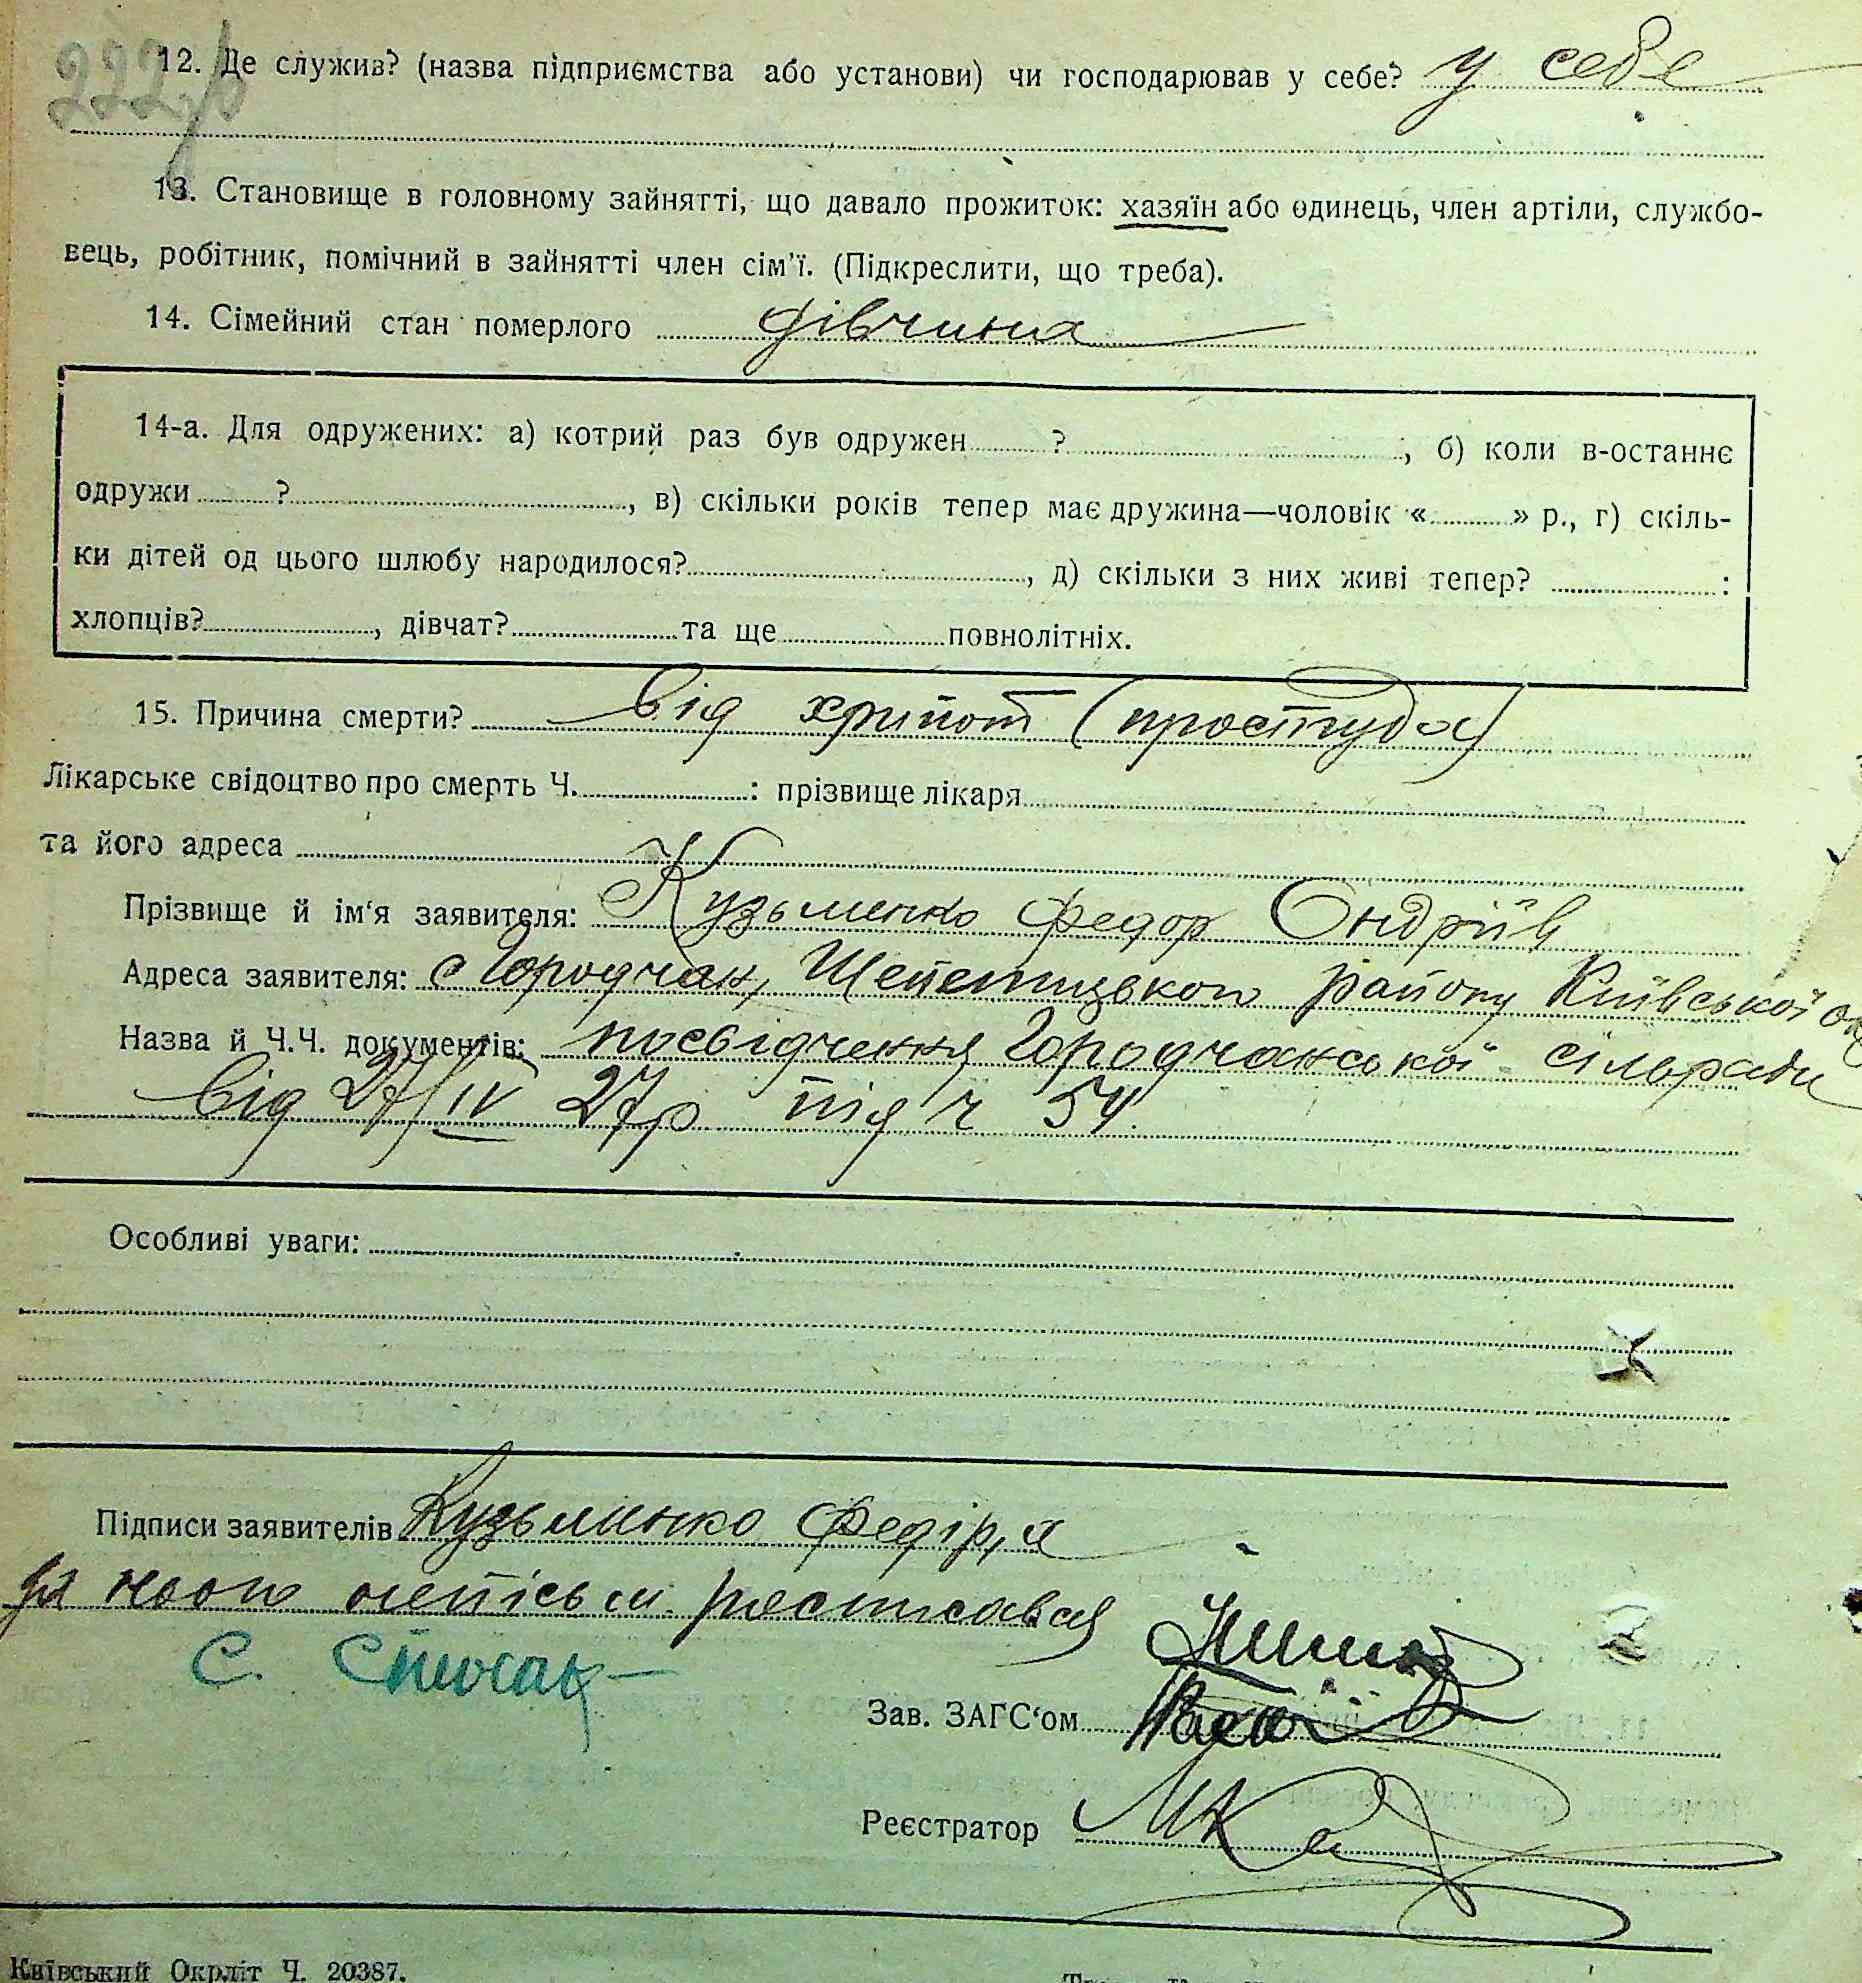 222
12. Де служив? (назва підприємства або установи) чи господарював у себе? у себе
13. Становище в головному зайнятті, що давало прожиток: хазяїн або одинець, член артіли, службо-
вець, робітник, помічний в зайнятті член сім'ї. (Підкреслити, що треба).
14. Сімейний стан померлого дівчина
14-а. Для одружених: а) котрий раз був одружен ?, б) коли в-останнє
одружи ?, в) скільки років тепер має дружина—чоловік « » р., г) скіль-
ки дітей од цього шлюбу народилося?, д) скільки з них живі тепер? :
хлопців?, дівчат? та ще повнолітніх.
15. Причина смерти? від хрипот (простуда)
Лікарське свідоцтво про смерть Ч. : прізвище лікаря
та його адреса
Прізвище й ім'я заявителя: Кузьменко Федор Ондріїв
Адреса заявителя: с Городчан, району Київської
Назва й Ч.Ч. документів: посвідчення Городчанської сільради
від 27/IV 27р під ч 54.
Особливі уваги:
Підписи заявителів Кузьменко Федір, а
за нього неписьм. росписався
С.
Зав. ЗАГС'ом
Реєстратор
Київський Окрліт Ч. 20387.